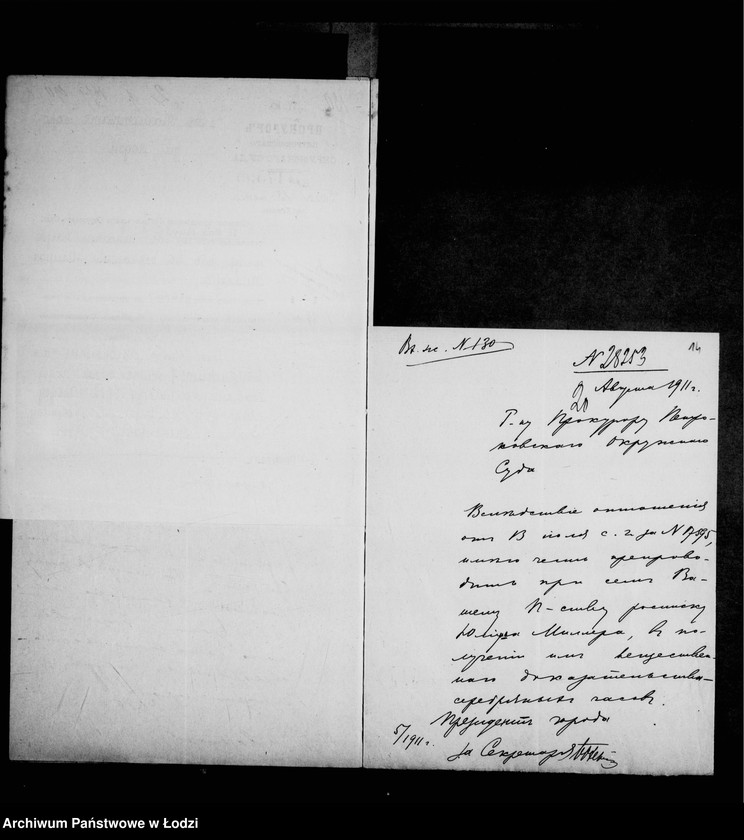 Вх. № 130
14
№ 28253
20 Августа 1911 г.
Г-ну Прокурору Петро-
ковского Окружного
Суда
Вследствие отношения
от В июля с. г. за №
имею честь препрово-
дить при сем Ва-
шему П-ству росписку
Юлиуса Миллера, в по-
лучении им веществен-
наго доказательства
серебряных часов.
Президент города
5/1911 г.
За Секретаря
Archiwum Państwowe w Łodzi